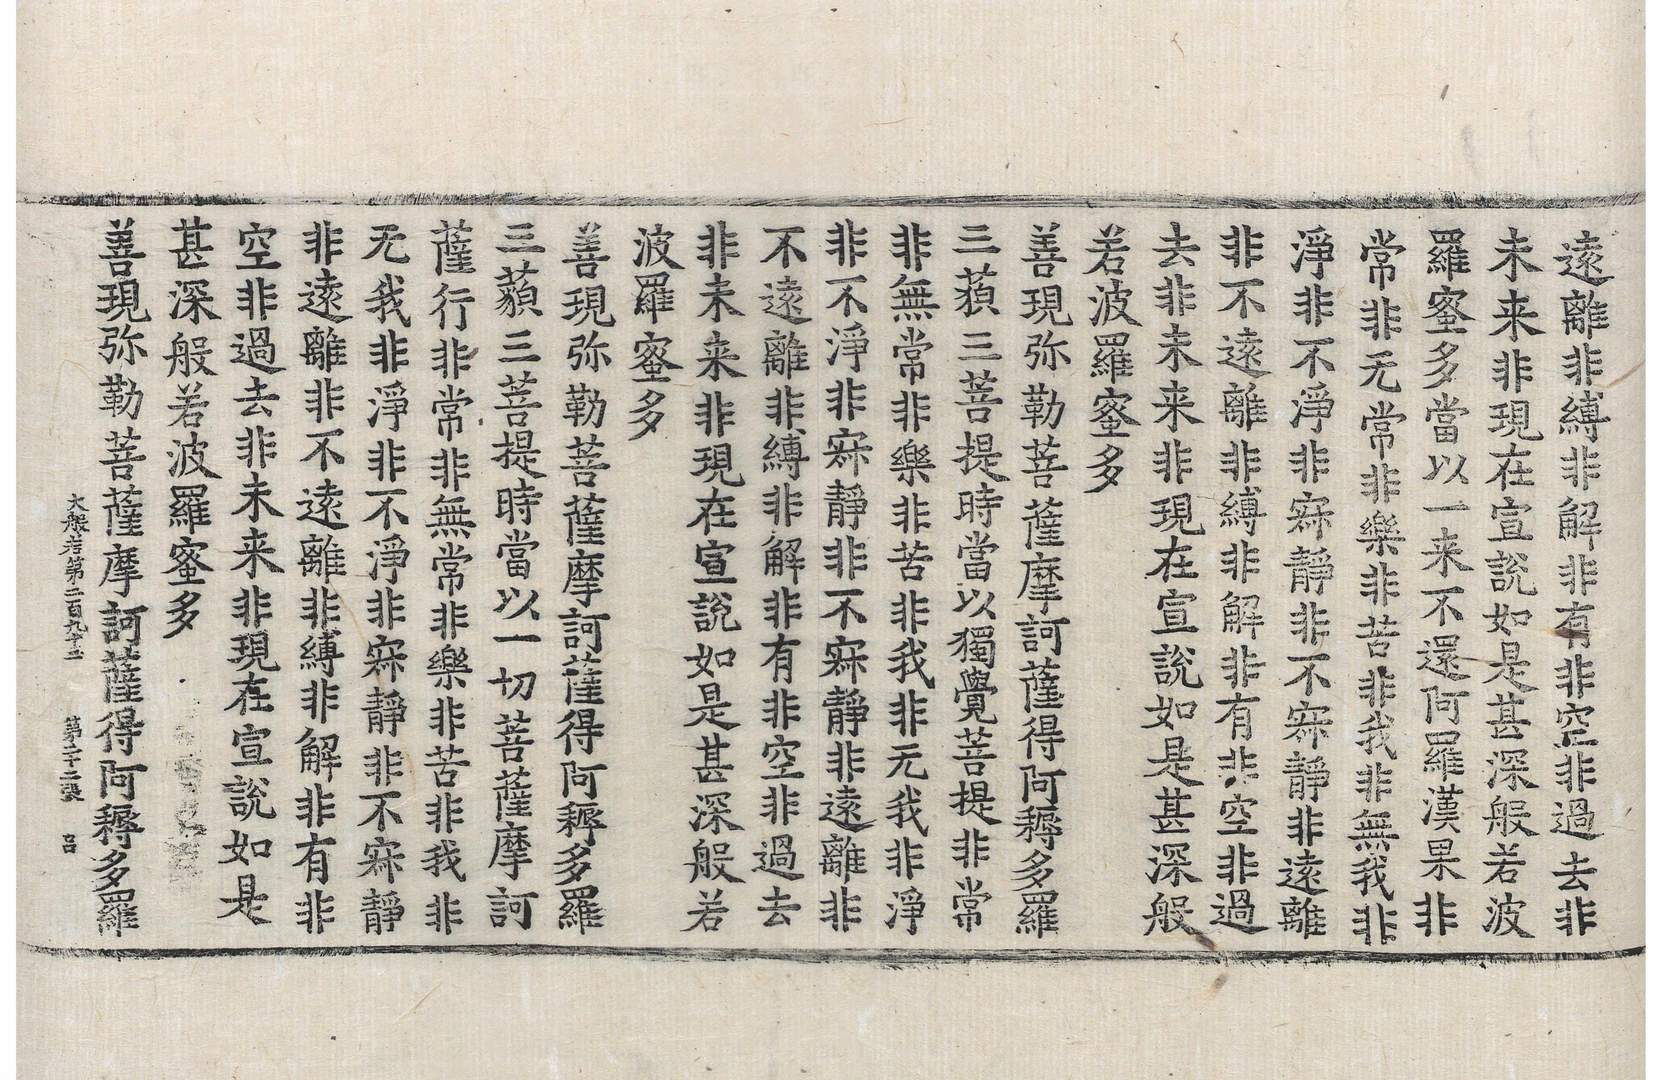 遠離非縛非解非有非空非過去非
未来非現在宣說如是甚深般若波
羅蜜多當以一来不還阿羅漢果非
常非无常非樂非苦非我非無我非
淨非不淨非寂靜非不寂靜非遠離
非不遠離非縛非解非有非空非過
去非未来非現在宣說如是甚深般
若波羅蜜多
善現弥勒菩薩摩訶薩得阿耨多羅
三藐三菩提時當以獨覺菩提非常
非無常非樂非苦非我非无我非淨
非不淨非寂靜非不寂靜非遠離非
不遠離非縛非解非有非空非過去
非未来非現在宣說如是甚深般若
波羅蜜多
善現弥勒菩薩摩訶薩得阿耨多羅
三藐三菩提時當以一切菩薩摩訶
薩行非常非無常非樂非苦非我非
无我非淨非不淨非寂靜非不寂靜
非遠離非不遠離非縛非解非有非
空非過去非未来非現在宣說如是
甚深般若波羅蜜多
善現弥勒菩薩摩訶薩得阿耨多羅
大般若第二百九十二 第二十二張 呂